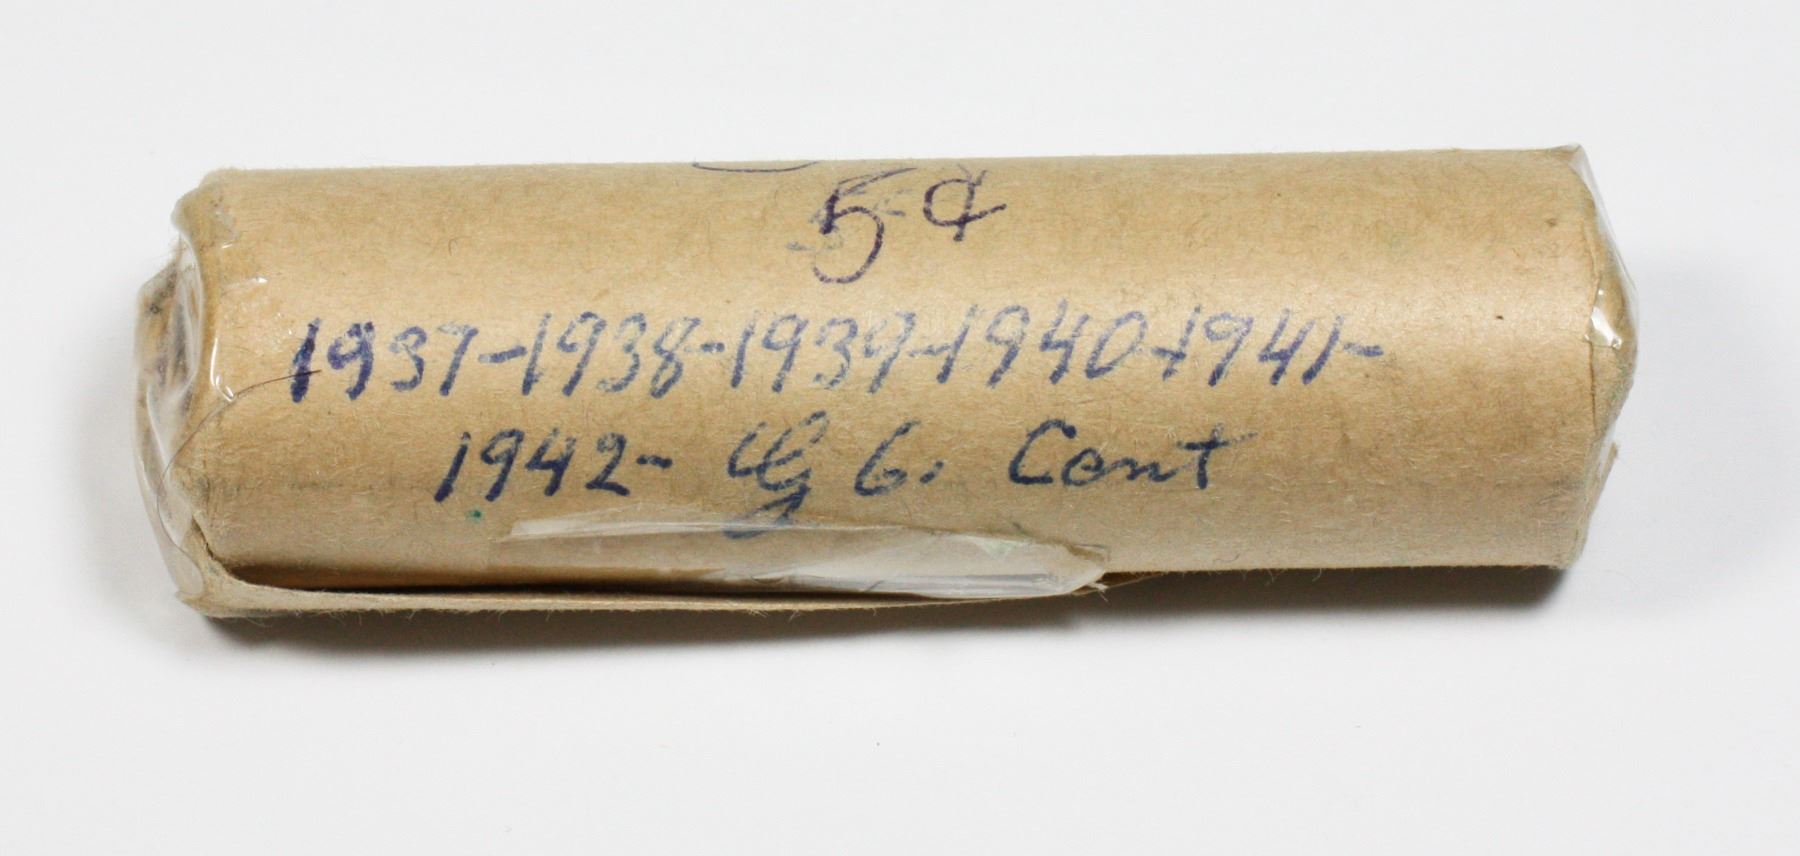 5¢
1937-1938-1939-1940-1941-
1942- G. Cent